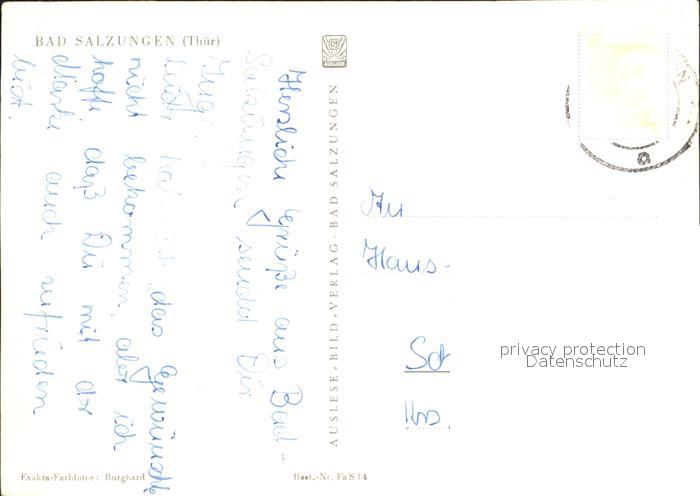 BAD SALZUNGEN (Thür)
Herzliche Grüße aus Bad-
Salzungen sendet Dir
Inge.
Leider hab ich das Gewünschte
nicht bekommen, aber ich
hoffe, daß Du mit der
Marke auch zufrieden
bist.
AUSLESE
AUSLESE-BILD-VERLAG · BAD SALZUNGEN
a
An
Hans-
Krs.
privacy protection
Datenschutz
Exakta-Farbfotos: Burghard
Best.-Nr. Fa S 14